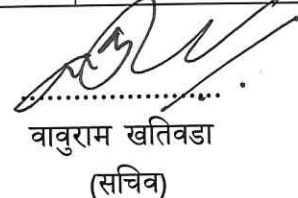 ..............................
वावुराम खतिवडा
(सचिव)